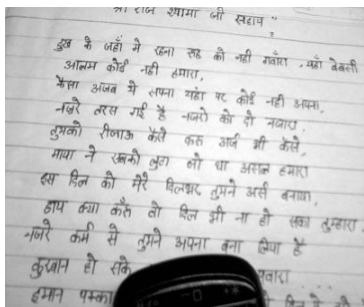 श्री राज श्यामा जी सहाय
दुख के जहाँ मे रहना रूह को नही गवाँरा, यहाँ बेबसी
आलम कोई नही हमारा,
कैसा अजब ये सपना यहाँ पर कोई नही अपना,
नजरे तरस गई है नजारो को दो नजारा,
तुमको रीजाऊ कैसे करू अर्ज भी कैसे,
माया ने सबको लुटा जो था असल हमारा
इस दिल को मेरे दिलभर तुमने अर्स बनाया,
हाय क्या करूँ वो दिल भी ना हो सका तुम्हारा,
नजरे कर्म से तुमने अपना बना लिया है
कुरबान हो सके
इमान पक्का